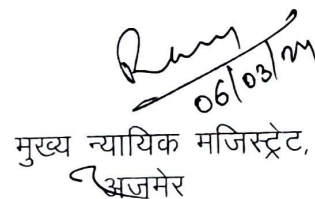 06/03/24
मुख्य न्यायिक मजिस्ट्रेट,
अजमेर